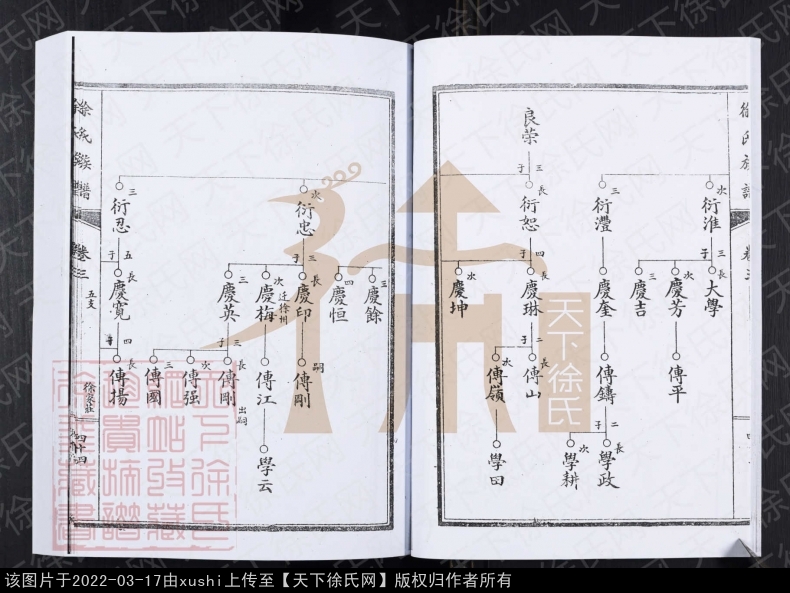 徐氏族譜
卷三
良榮
三子
長 衍恕
三 衍灃
次 衍淮
四子
三子
次 慶坤
長 慶琳
慶奎
三 慶吉
次 慶芳
長 大學
二子
次 傳嶺
長 傳山
傳鑄
傳平
二子
學田
次 學耕
長 學政
徐氏族譜
卷三
五支
徐家莊
四十四
三 衍忍
次 衍忠
五子
三子
長 慶寬
三 慶英
次 慶梅
迁徐州
長 慶印
四 慶恒
三 慶餘
四
三子
嗣
長 傳揚
三 傳國
次 傳强
長 傳剛
出嗣
傳江
傳剛
學云
天下徐氏
天下徐氏网
该图片于2022-03-17由xushi上传至【天下徐氏网】版权归作者所有